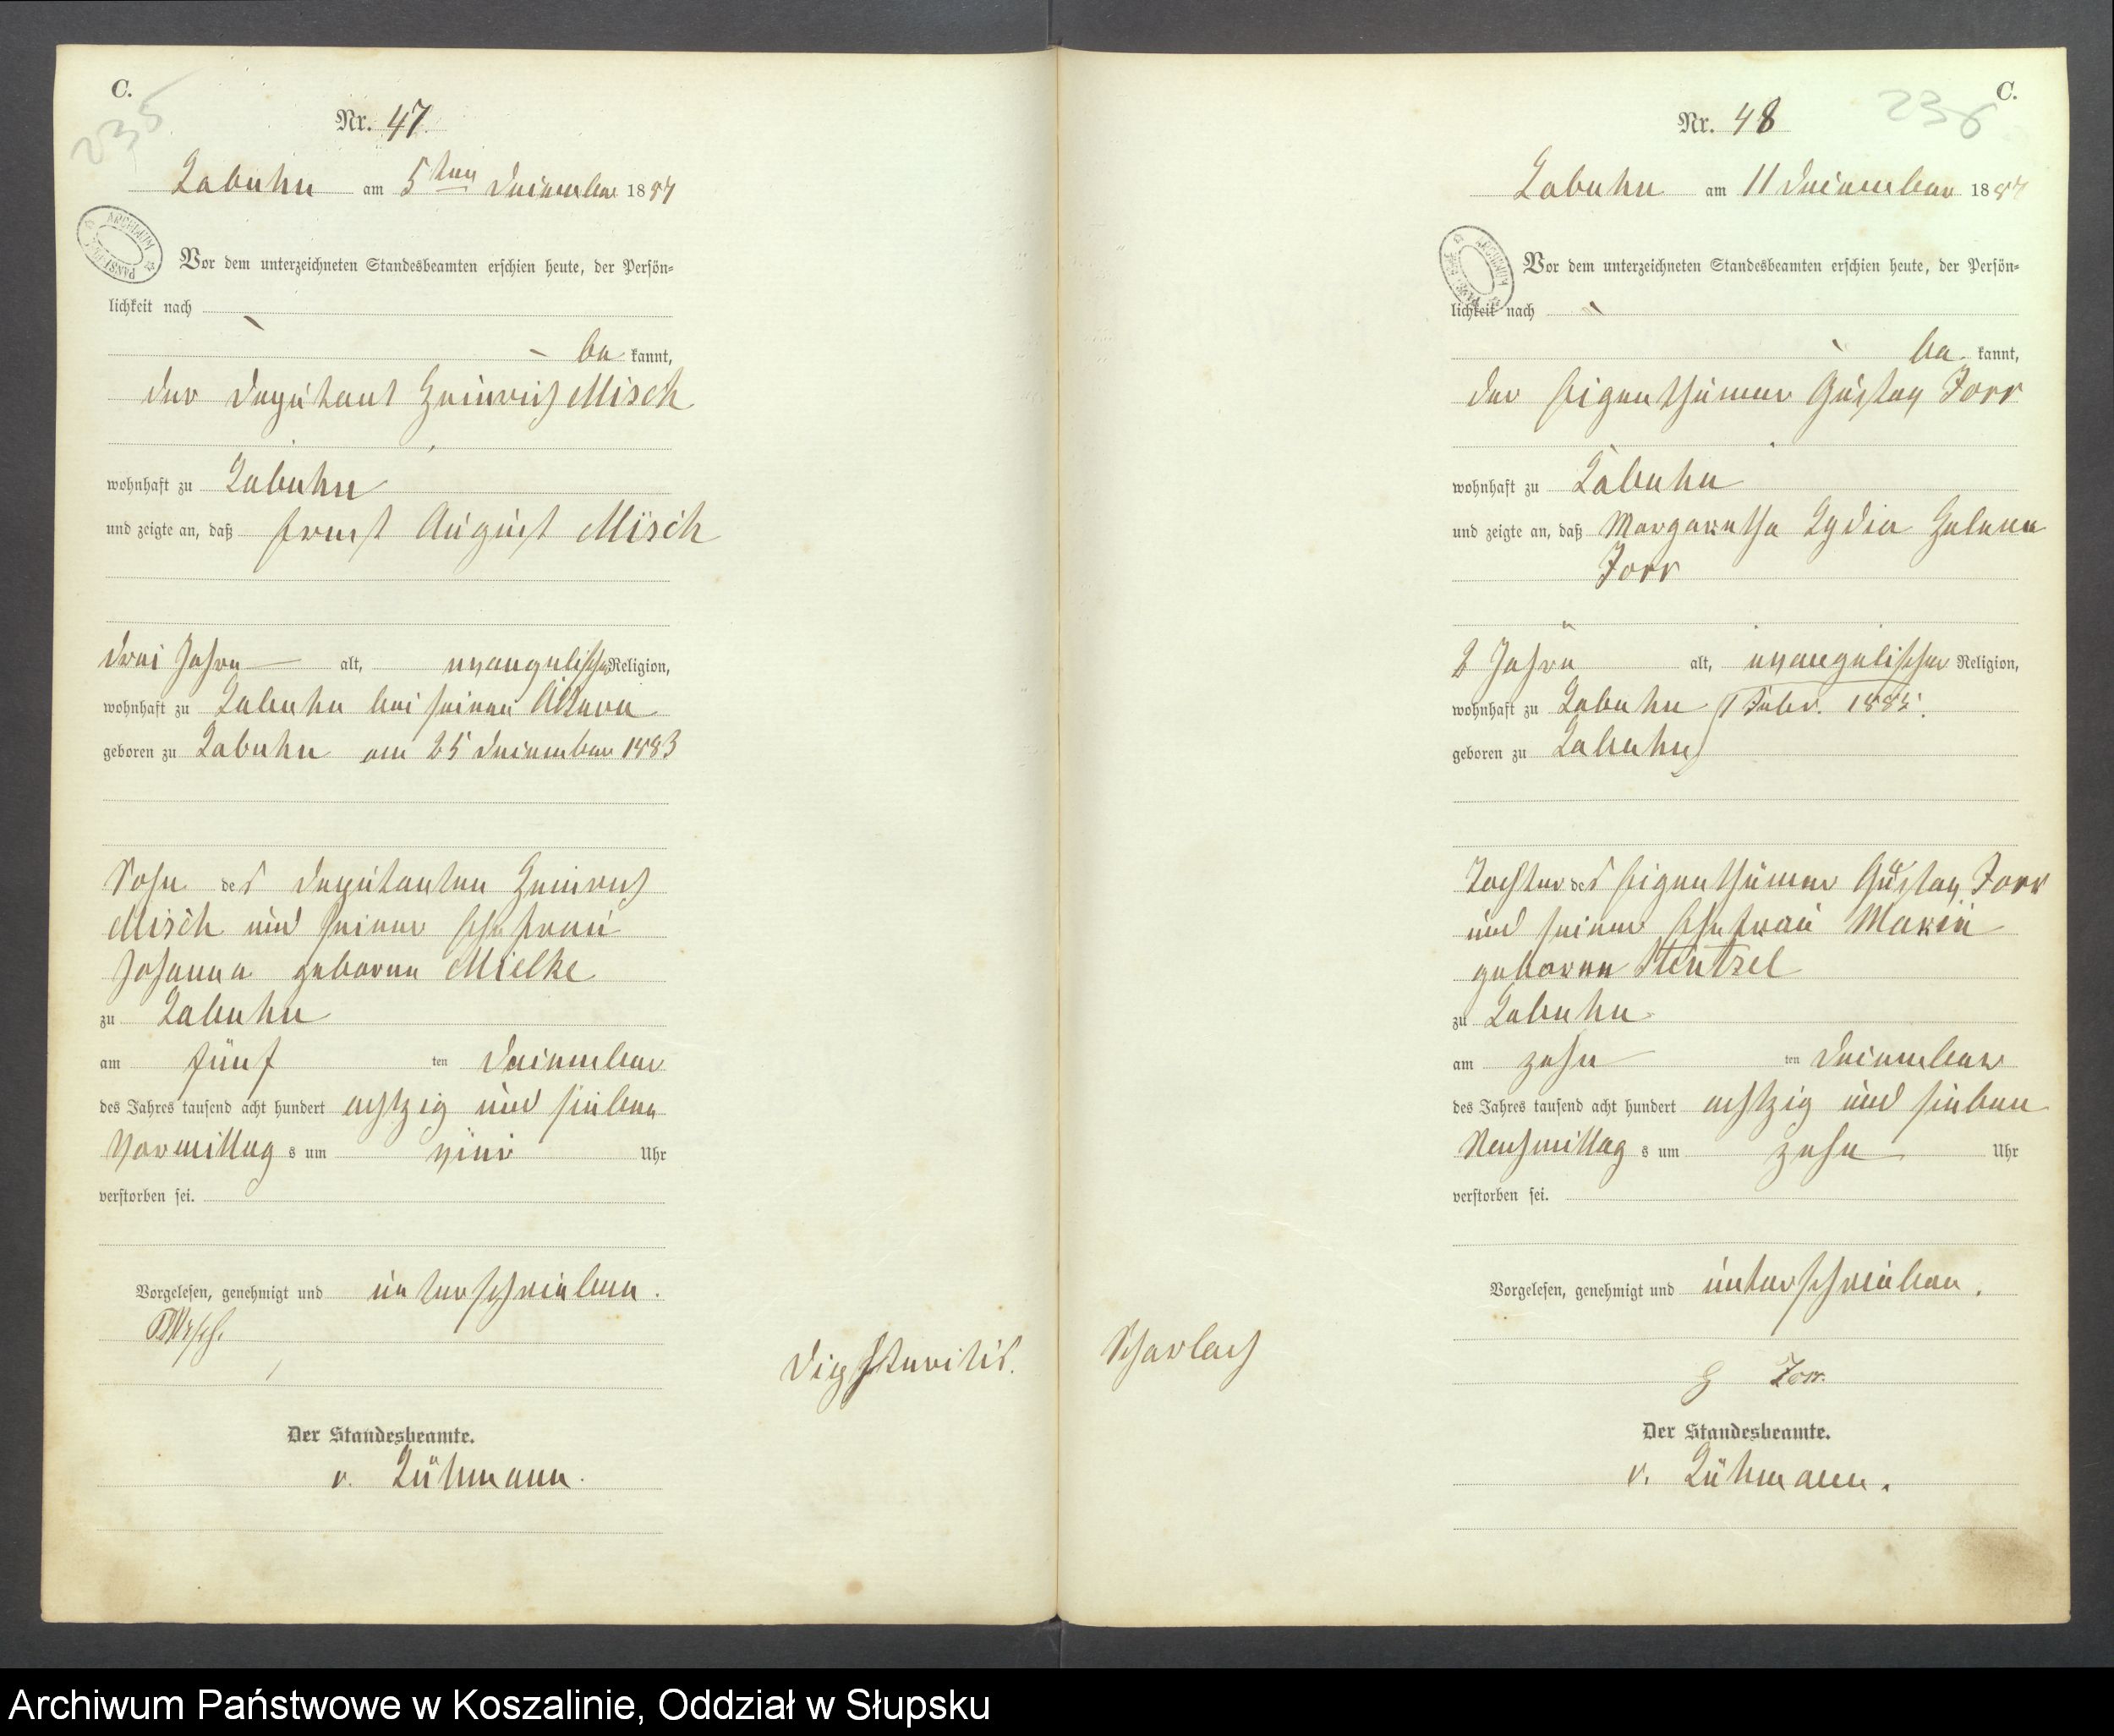 C.
235
Nr. 47.
Labuhn am 5ten Dezember 1887
Vor dem unterzeichneten Standesbeamten erschien heute, der Persön-
lichkeit nach
be kannt,
der Deputant Heinrich Misch
wohnhaft zu Labuhn
und zeigte an, daß Ernst August Misch
drei Jahre alt, evangelischer Religion,
wohnhaft zu Labuhn bei seinen Ältern
geboren zu Labuhn am 25 Dezember 1883
Sohn des Deputanten Heinrich
Misch und seiner Ehefrau
Johanna geborne Mielke
zu Labuhn
am fünf ten Dezember
des Jahres tausend acht hundert achtzig und sieben
Vormittag s um vier Uhr
verstorben sei.
Vorgelesen, genehmigt und unterschrieben.
Misch.
Diphteritis.
Der Standesbeamte.
v. Lühmann.
C.
236
Nr. 48
Labuhn am 11 Dezember 1887
Vor dem unterzeichneten Standesbeamten erschien heute, der Persön-
lichkeit nach
be kannt,
der Eigenthümer Gustav Torr
wohnhaft zu Labuhn
und zeigte an, daß Margaretha Lydia Helene
Torr
2 Jahre alt, evangelischer Religion,
wohnhaft zu Labuhn 1 Febr. 1885.
geboren zu Labuhn
Tochter des Eigenthümer Gustav Torr
und seiner Ehefrau Marie
geborne
zu Labuhn
am zehn ten Dezember
des Jahres tausend acht hundert achtzig und sieben
Nachmittag s um zehn Uhr
verstorben sei.
Vorgelesen, genehmigt und unterschrieben.
Scharlach
G Torr.
Der Standesbeamte.
v. Lühmann.
Archiwum Państwowe w Koszalinie, Oddział w Słupsku